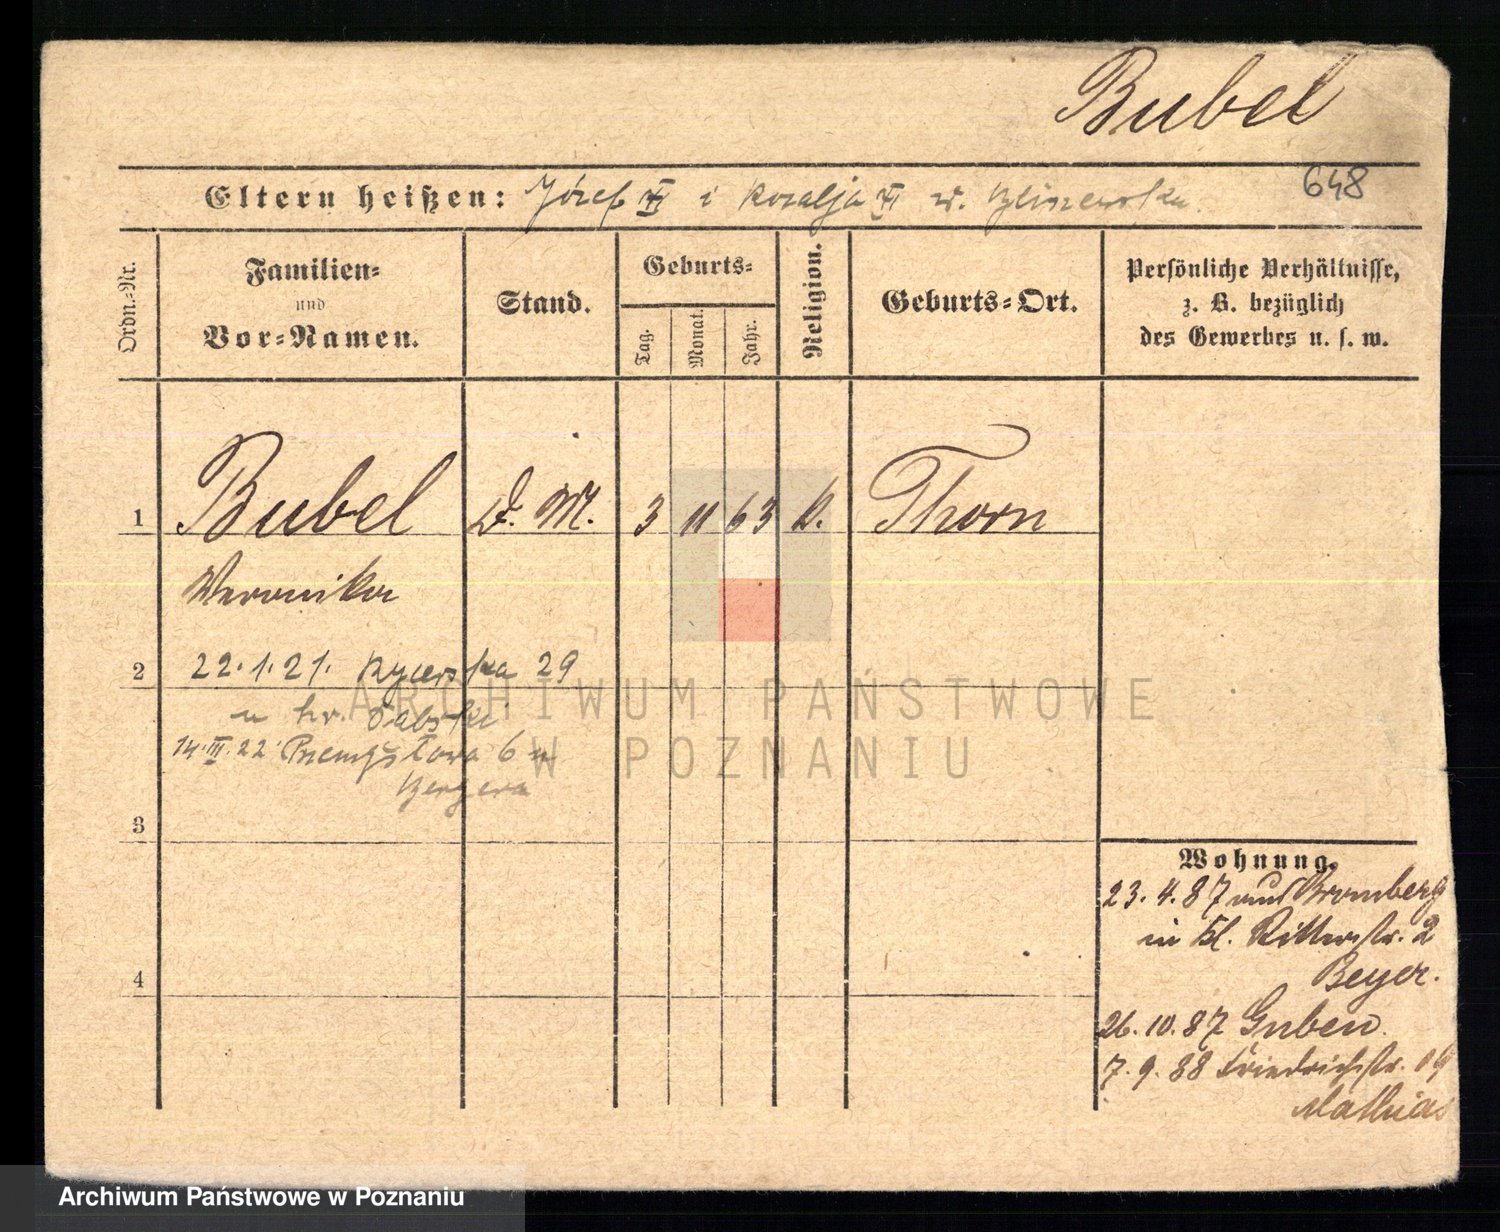 Bubel
648
Eltern heißen: Józef i Rozalja
Ordn.-Nr.
Familien-
und
Vor-Namen.
Stand.
Geburts-
Tag.
Monat.
Jahr.
Religion.
Geburts-Ort.
Persönliche Verhältnisse,
z. B. bezüglich
des Gewerbes u. s. w.
1
Bubel
D. M.
3
11
63
K.
Thorn
Weronika
2
22.1.21. Rycerska 29
u hr.
14.III.22 Przemysłowa 6 u
Bergera
3
4
Wohnung.
23.4.87 aus Bromberg
in Kl. Ritterstr. 2
Beyer.
26.10.87 Guben.
7.9.88 Friedrichstr. 19
Mathias
ARCHIWUM PAŃSTWOWE
W POZNANIU
Archiwum Państwowe w Poznaniu